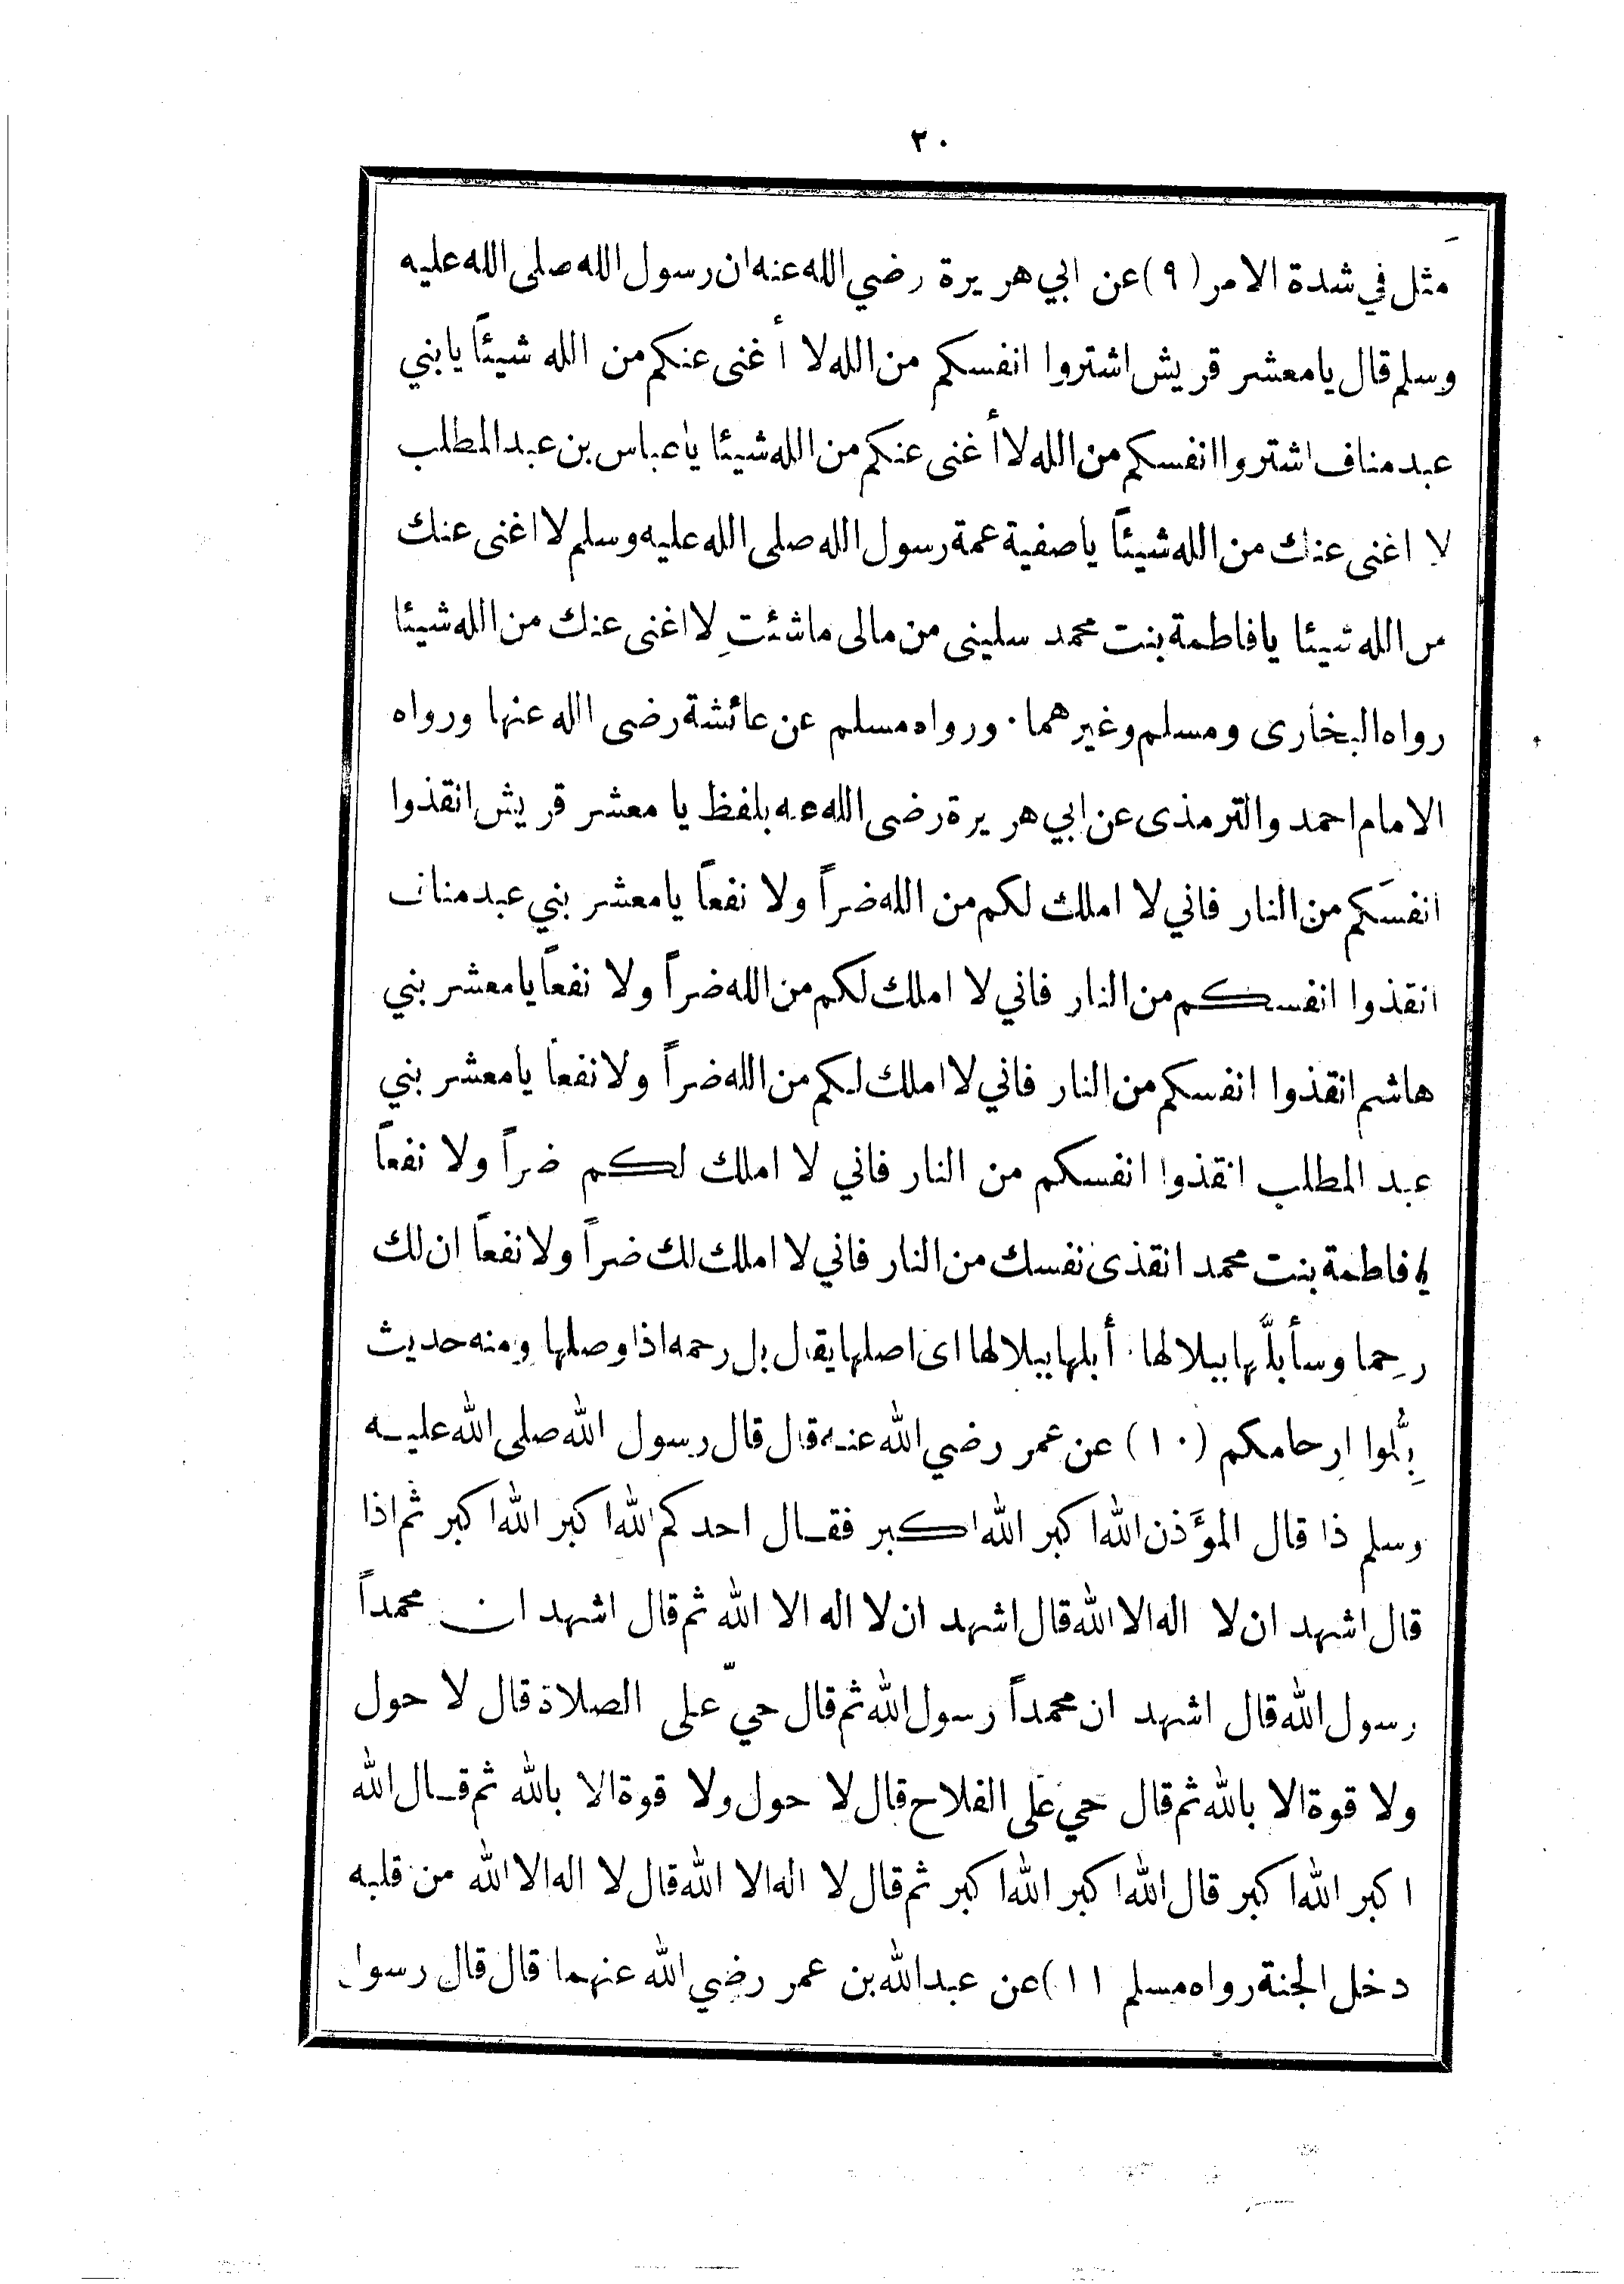 ٢٠
مثل في شدة الامر (٩) عن ابي هريرة رضي الله عنه ان رسول الله صلى الله عليه
وسلم قال يا معشر قريش اشتروا انفسكم من الله لا أغنى عنكم من الله شيئاً يا بني
عبد مناف اشتروا انفسكم من الله لا أغنى عنكم من الله شيئا يا عباس بن عبد المطلب
لا اغنى عنك من الله شيئاً يا صفية عمة رسول الله صلى الله عليه وسلم لا اغنى عنك
من الله شيئا يا فاطمة بنت محمد سلينى من مالى ما شئتِ لا اغنى عنك من الله شيئا
رواه البخارى ومسلم وغيرهما · ورواه مسلم عن عائشة رضى الله عنها ورواه
الامام احمد والترمذى عن ابي هريرة رضى الله عنه بلفظ يا معشر قريش انقذوا
انفسَكم من النار فاني لا املك لكم من الله ضراً ولا نفعاً يا معشر بني عبد مناف
انقذوا انفسكم من النار فاني لا املك لكم من الله ضراً ولا نفعاً يا معشر بني
هاشم انقذوا انفسكم من النار فاني لا املك لكم من الله ضراً ولا نفعاً يا معشر بني
عبد المطلب انقذوا انفسكم من النار فاني لا املك لكم ضراً ولا نفعاً
يا فاطمة بنت محمد انقذى نفسك من النار فاني لا املك لك ضراً ولا نفعاً ان لك
رحِما وسأبلُّها ببلالها · أبلها ببلالها اى اصلها يقال بل رحمه اذا وصلها ومنه حديث
بِلُّوا ارحامكم (١٠) عن عمر رضي الله عنه قال قال رسول الله صلى الله عليه
وسلم ذا قال المؤَذن الله اكبر الله اكبر فقال احدكم الله اكبر الله اكبر ثم اذا
قال اشهد ان لا اله الا الله قال اشهد ان لا اله الا الله ثم قال اشهد ان محمداً
رسول الله قال اشهد ان محمداً رسول الله ثم قال حيّ على الصلاة قال لا حول
ولا قوة الا بالله ثم قال حي على الفلاح قال لا حول ولا قوة الا بالله ثم قال الله
اكبر الله اكبر قال الله اكبر الله اكبر ثم قال لا اله الا الله قال لا اله الا الله من قلبه
دخل الجنة رواه مسلم ١١) عن عبد الله بن عمر رضي الله عنهما قال قال رسول